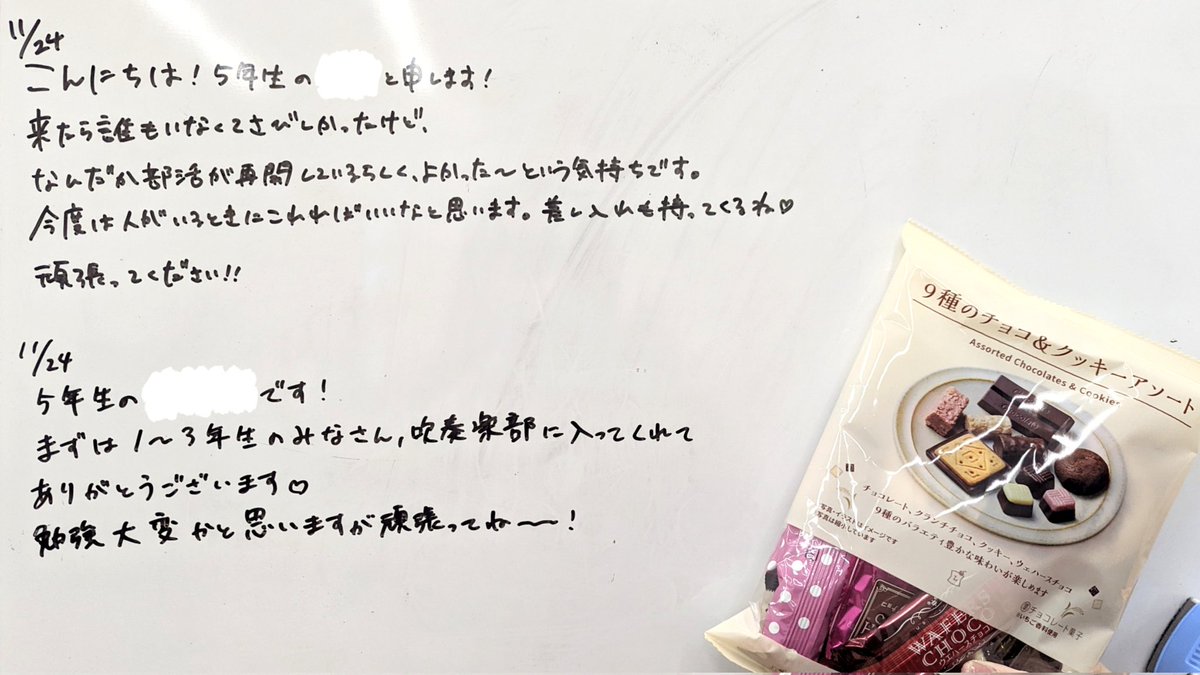 11/24
こんにちは！5年生の と申します！
来たら誰もいなくてさびしかったけど、
なんだか部活が再開しているらしく、よかった〜という気持ちです。
今度は人がいるときにこれればいいなと思います。差し入れも持ってくるね♡
頑張ってください!!
11/24
5年生の です！
まずは1〜3年生のみなさん,吹奏楽部に入ってくれて
ありがとうございます♡
勉強大変かと思いますが頑張ってね〜！
9種のチョコ&クッキーアソート
Assorted Chocolates & Cookies
チョコレート、クランチチョコ、クッキー、ウェハースチョコ
9種のバラエティ豊かな味わいが楽しめます
写真・イラストはイメージです
写真は縮小しています
チョコレート菓子
※いちご香料使用
WAFERS
CHOCO
ウエハースチョコ